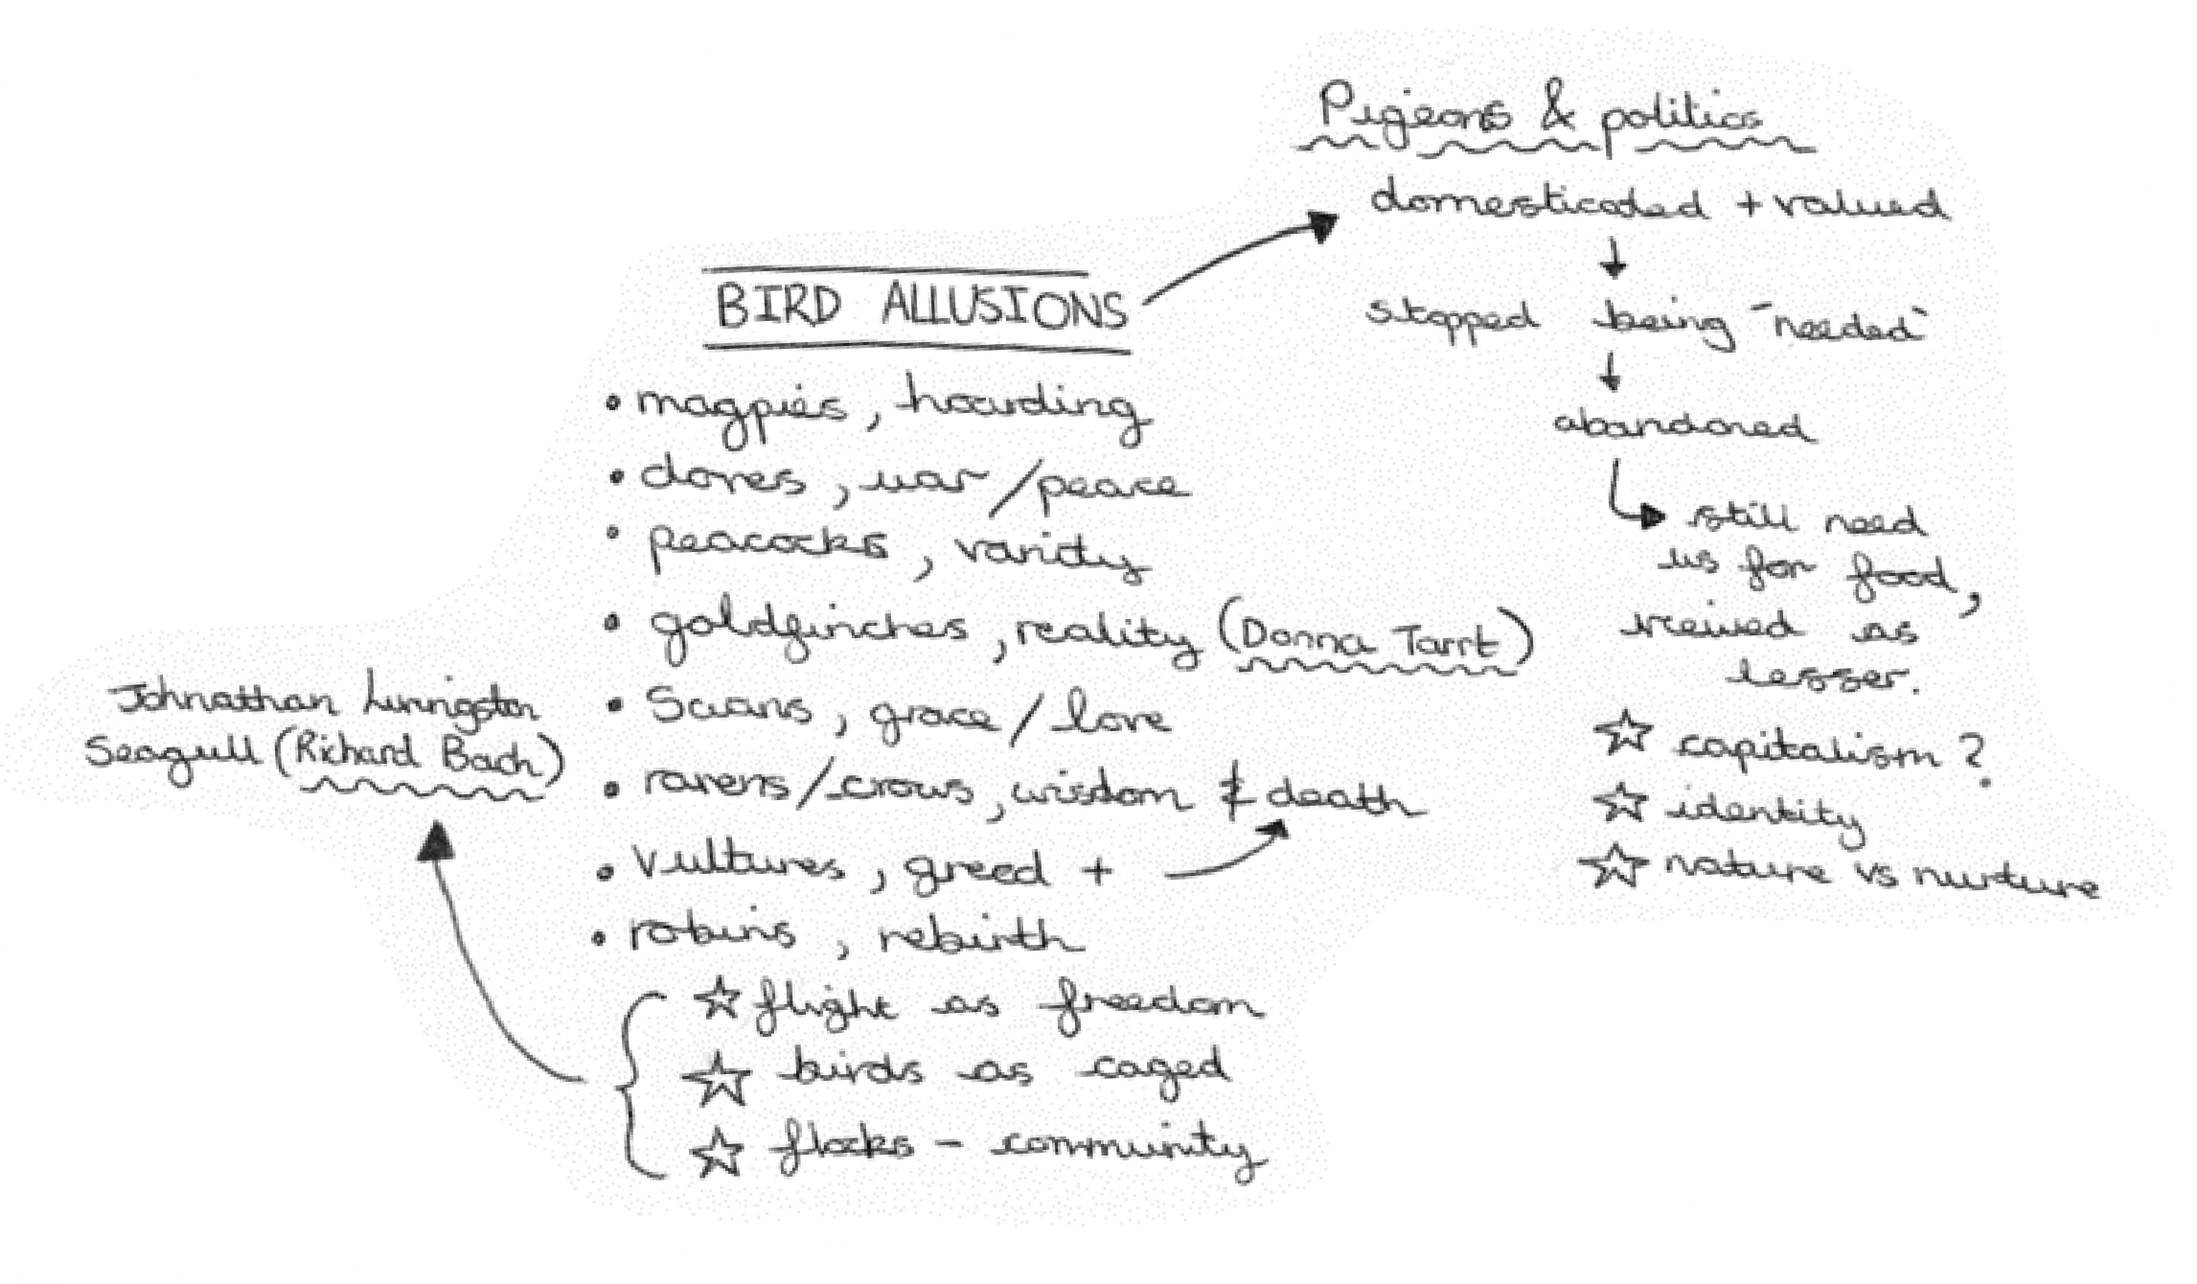 BIRD ALLUSIONS
• magpies, hoarding
• doves, war/peace
• peacocks, vanity
• goldfinches, reality (Donna Tarrt)
• Swans, grace/love
• ravens/crows, wisdom & death
• vultures, greed +
• robins, rebirth
☆ flight as freedom
☆ birds as caged
☆ flocks - community
Johnathan Livingston
Seagull (Richard Bach)
Pigeons & politics
domesticated + valued
↓
stopped being "needed"
↓
abandoned
↳ still need
us for food,
viewed as
lesser.
☆ capitalism?
☆ identity
☆ nature vs nurture